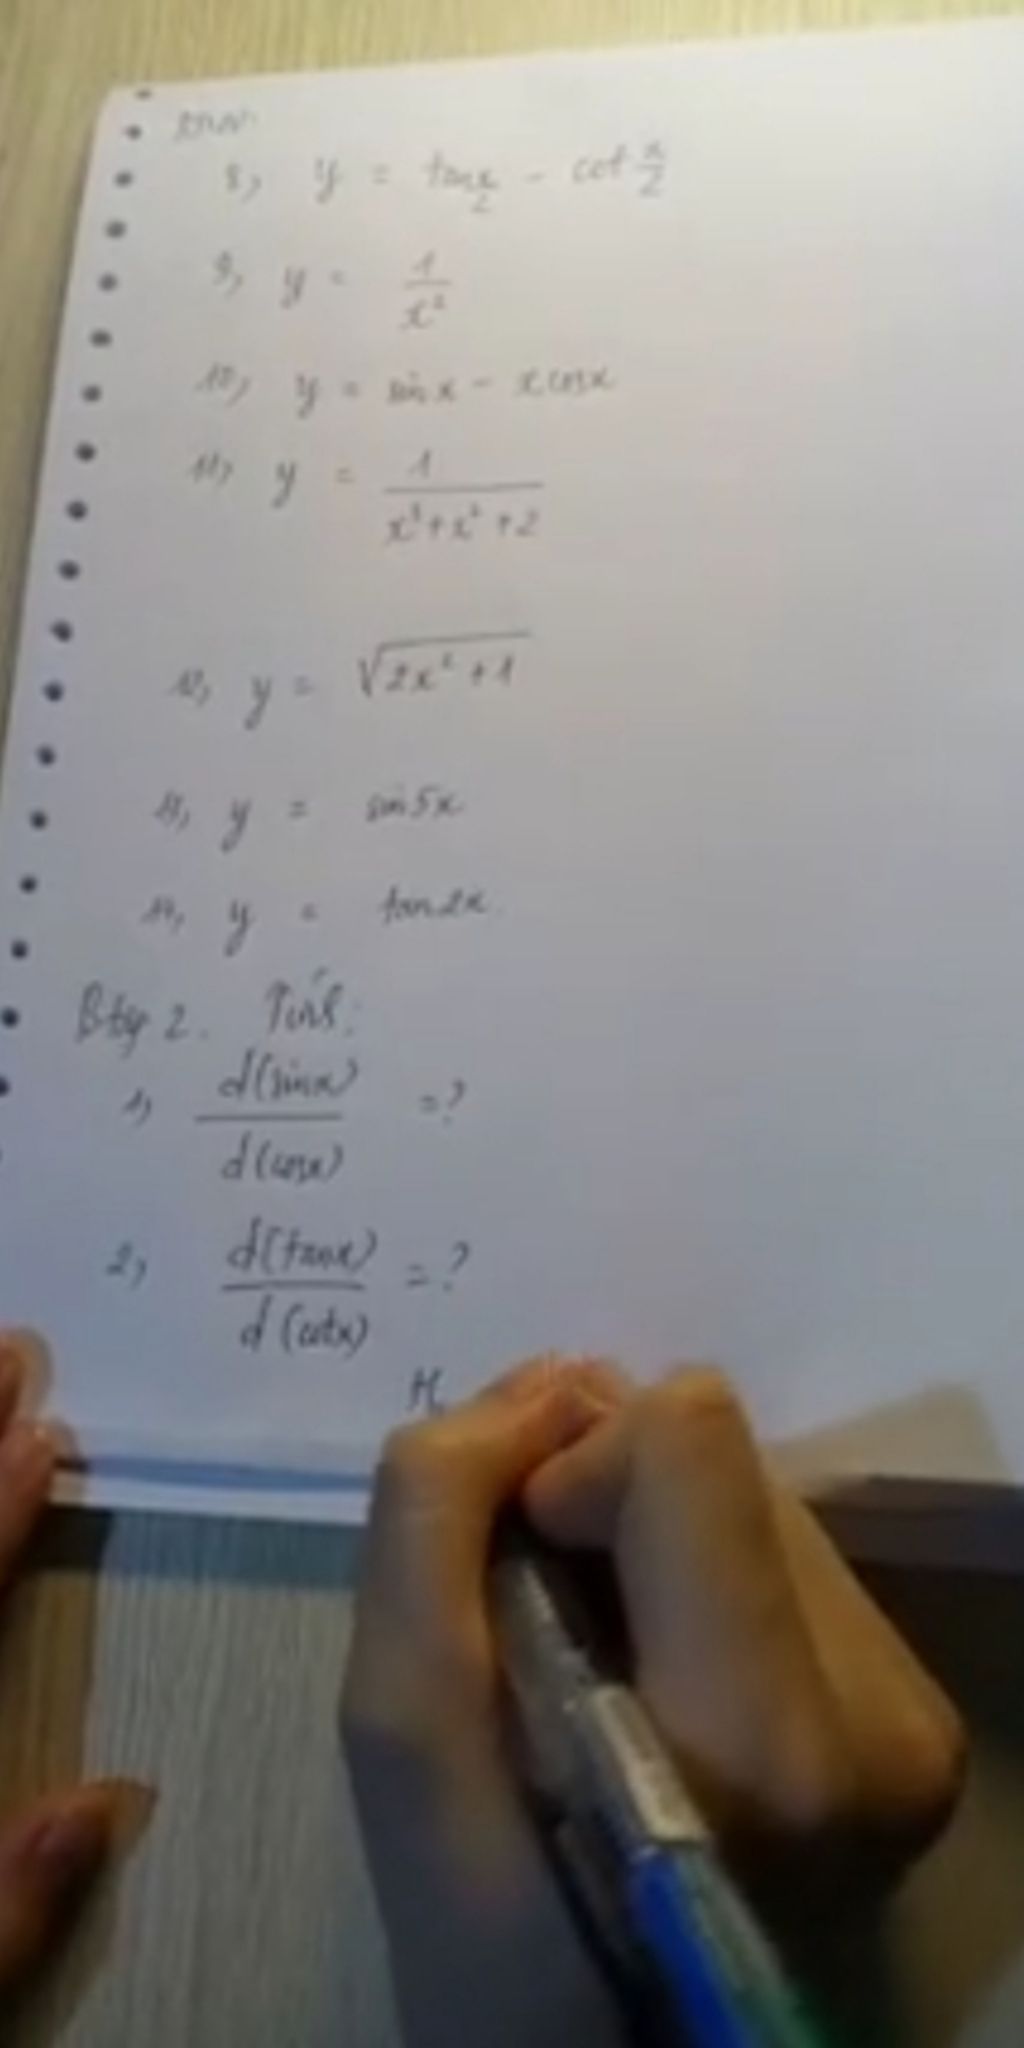 8, y = tan x/2 - cot x/2
9, y = 1/x²
10, y = sin x - x cosx
11, y = 1/(x³+x²+2)
12, y = √(2x²+1)
13, y = sin5x
14, y = tan2x
2. Tính:
1, d(sinx)/d(cosx) =?
2, d(tanx)/d(cotx) =?